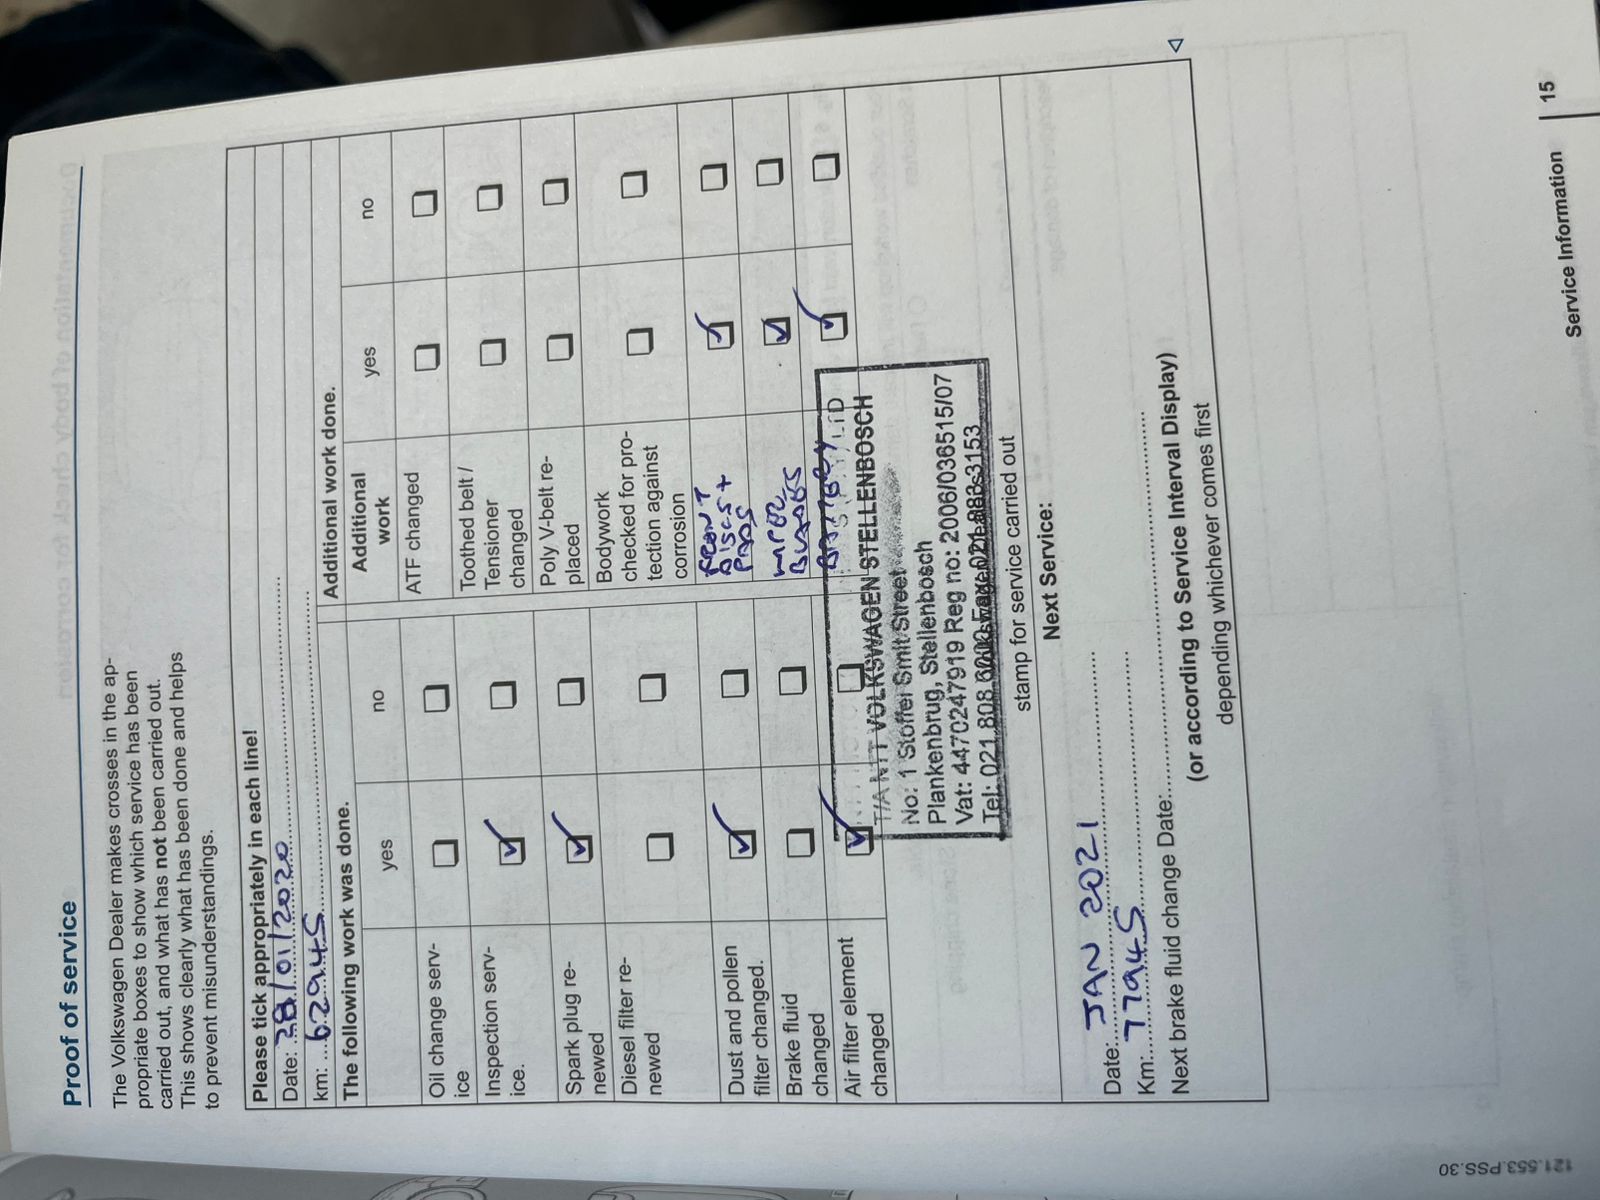 Proof of service
The Volkswagen Dealer makes crosses in the ap-
propriate boxes to show which service has been
carried out, and what has not been carried out.
This shows clearly what has been done and helps
to prevent misunderstandings.
Please tick appropriately in each line!
Date: 28/01/2020
km: 62945
The following work was done.
yes
no
Oil change serv-
ice
Inspection serv-
ice.
Spark plug re-
newed
Diesel filter re-
newed
Dust and pollen
filter changed.
Brake fluid
changed
Air filter element
changed
Additional work done.
Additional
work
yes
no
ATF changed
Toothed belt /
Tensioner
changed
Poly V-belt re-
placed
Bodywork
checked for pro-
tection against
corrosion
FRONT
DISCS +
PADS
WIPER
BLADES
BATTERY
LTD
T/A NTT VOLKSWAGEN STELLENBOSCH
No: 1 Stoffel Smit Street
Plankenbrug, Stellenbosch
Vat: 4470247919 Reg no: 2006/036515/07
Tel: 021 808 6200 Fax: 021 883 3153
stamp for service carried out
Next Service:
Date: JAN 2021
Km: 77945
Next brake fluid change Date:
(or according to Service Interval Display)
depending whichever comes first
Service Information
15
121.553.PSS.30